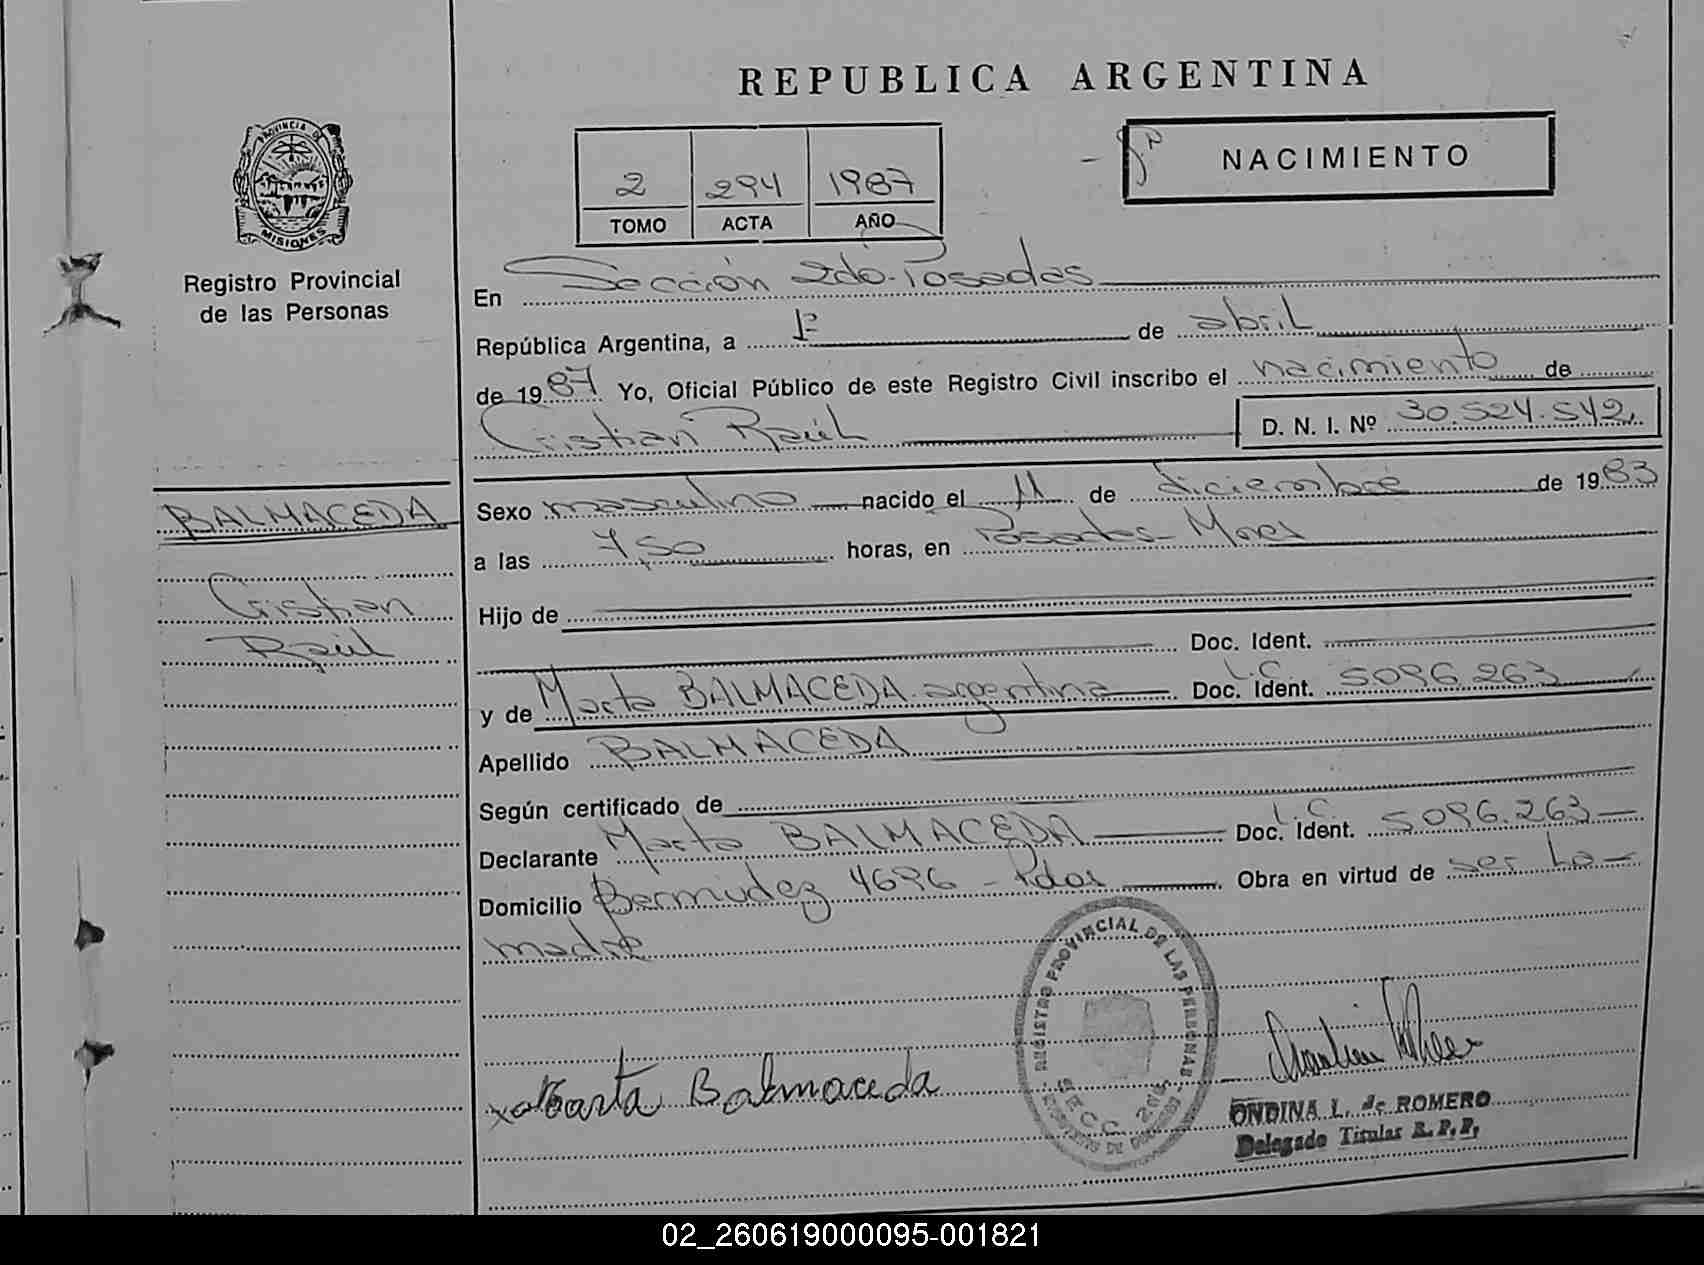 REPUBLICA ARGENTINA
PROVINCIA DE
MISIONES
Registro Provincial
de las Personas
2 294 1987
TOMO ACTA AÑO
NACIMIENTO
En Sección 2do. Posadas
República Argentina, a 1º de abril
de 1987 Yo, Oficial Público de este Registro Civil inscribo el nacimiento de
Cristian Raúl D. N. I. Nº 30.524.542
BALMACEDA
Cristian
Raúl
Sexo masculino nacido el 11 de diciembre de 1983
a las 7,50 horas, en Posadas - Mnes
Hijo de
Doc. Ident.
y de Marta BALMACEDA. argentina Doc. Ident. L.C. 5096.263
Apellido BALMACEDA
Según certificado de
Declarante Marta BALMACEDA Doc. Ident. L.C. 5096.263
Domicilio Bermudez 4696 - Pdas Obra en virtud de ser la
madre
REGISTRO PROVINCIAL DE LAS PERSONAS
SECC. 2da
Marta Balmaceda
ONDINA L. de ROMERO
Delegado Titular R. P. P.
02_260619000095-001821